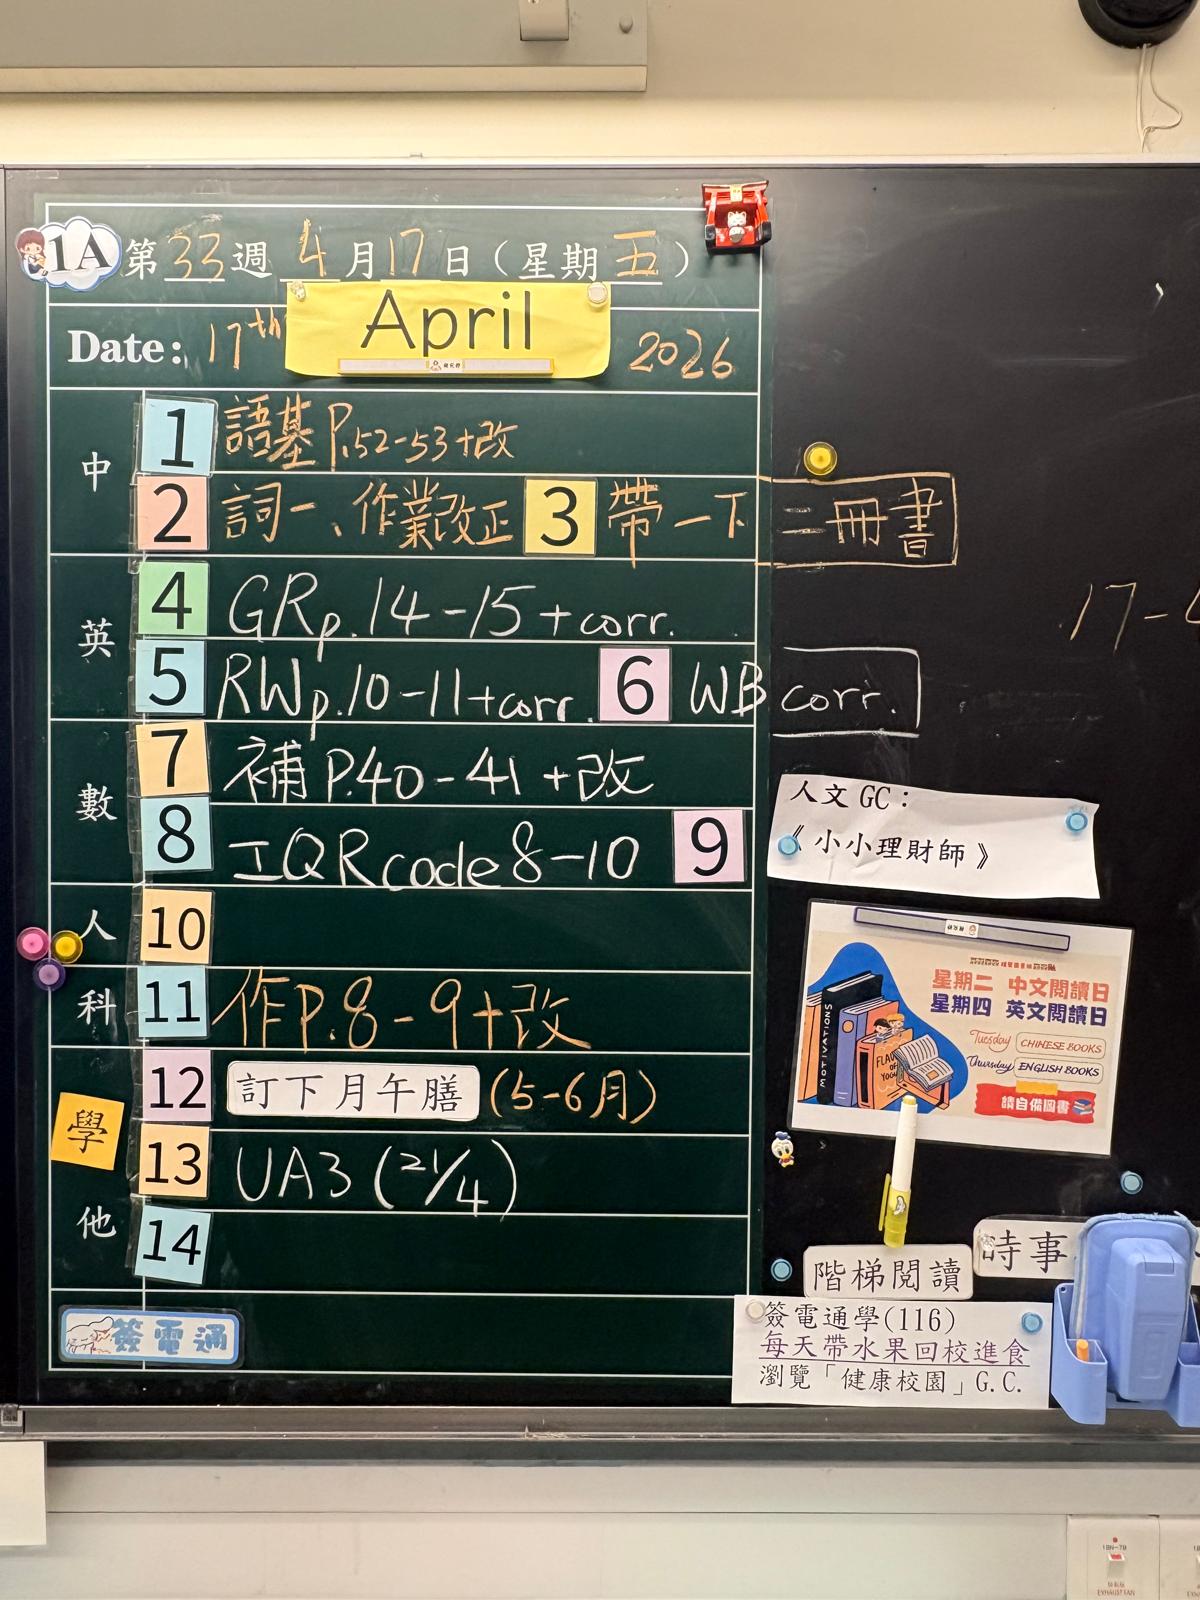 1A 第33週 4月17日(星期五)
Date: 17th April 2026
中
1 語基 P.52-53+改
2 詞一、作業改正 3 帶一下二冊書
英
4 GR p.14-15+corr.
5 RW p.10-11+corr. 6 WB corr.
數
7 補 P.40-41+改
8 工QR code 8-10 9
人
10
科
11 作P.8-9+改
學
12 訂下月午膳 (5-6月)
13 UA3 (21/4)
他
14
簽電通
17-
人文 GC:
《小小理財師》
星期二 中文閱讀日
星期四 英文閱讀日
Tuesday CHINESE BOOKS
Thursday ENGLISH BOOKS
請自備圖書
MOTIVATIONS
階梯閱讀
時事
簽電通學(116)
每天帶水果回校進食
瀏覽「健康校園」G.C.
EXHAUST FAN